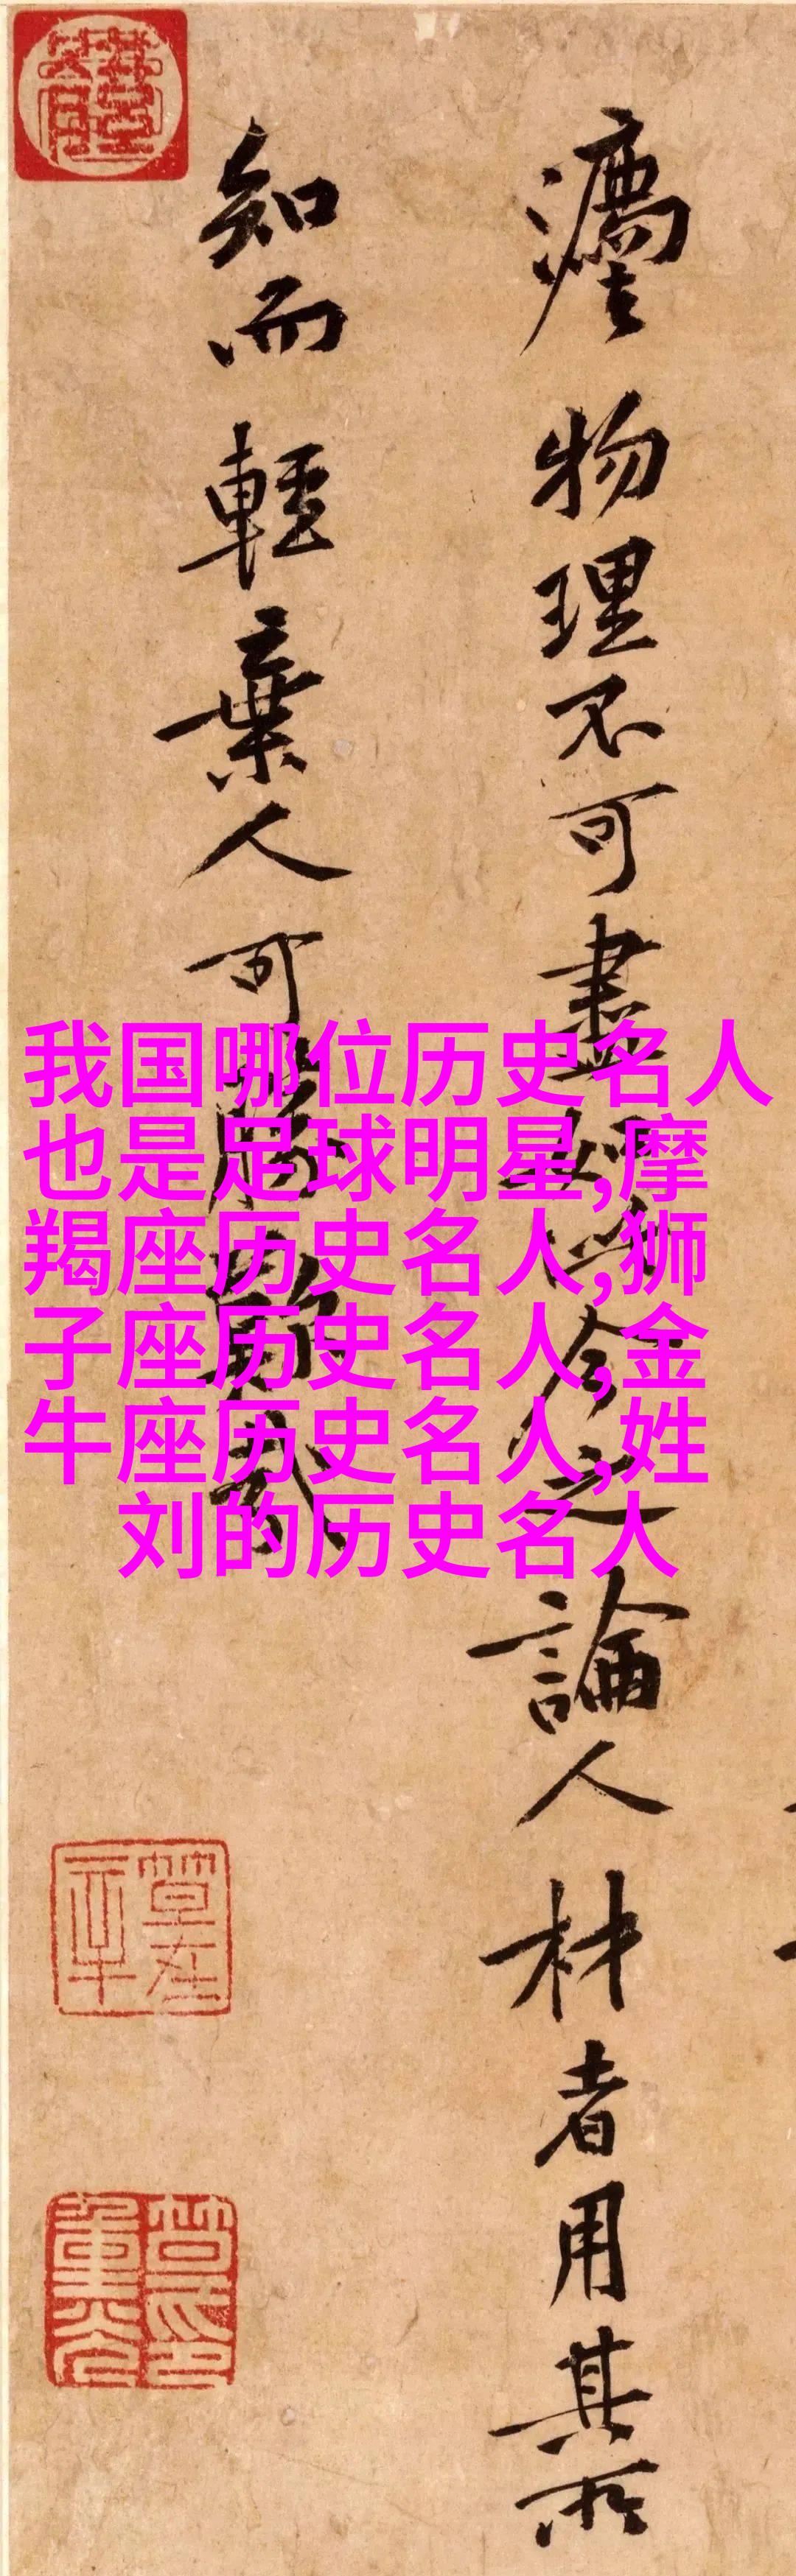 我国哪位历史名人
也是足球明星,摩
羯座历史名人,狮
子座历史名人,金
牛座历史名人,姓
刘的历史名人
物理不可盡如此今之論人材者用其所
知而輕棄人可勝歎哉